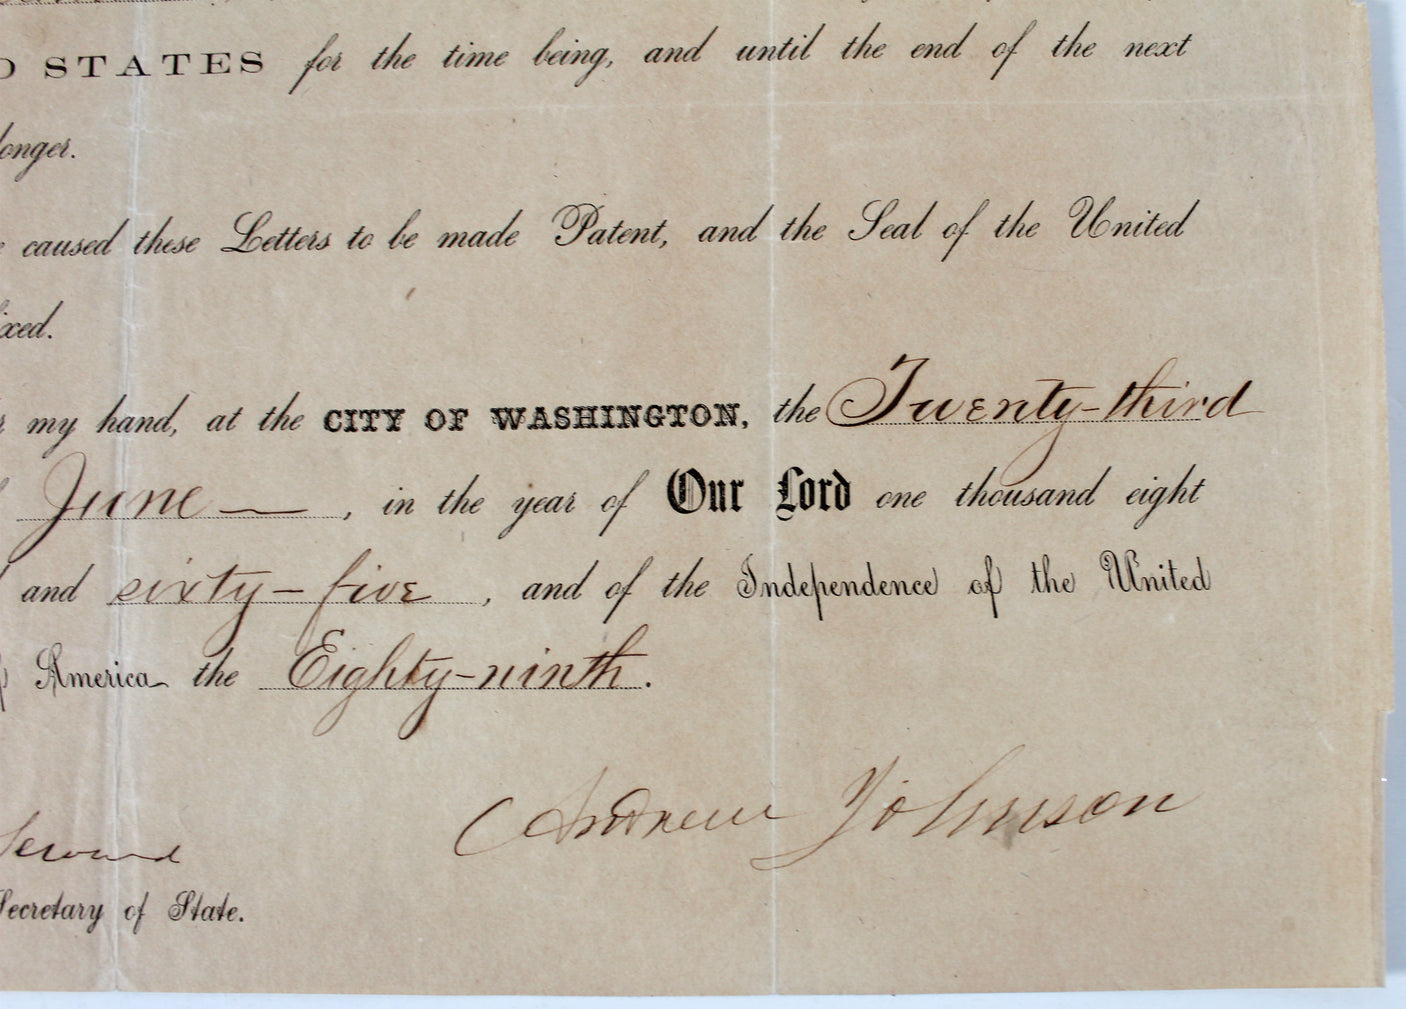 STATES for the time being, and until the end of the next
longer.
caused these Letters to be made Patent, and the Seal of the United
ixed.
my hand, at the CITY OF WASHINGTON, the Twenty-third
June, in the year of Our Lord one thousand eight
and sixty-five, and of the Independence of the United
America the Eighty-ninth.
Andrew Johnson
Seward
Secretary of State.